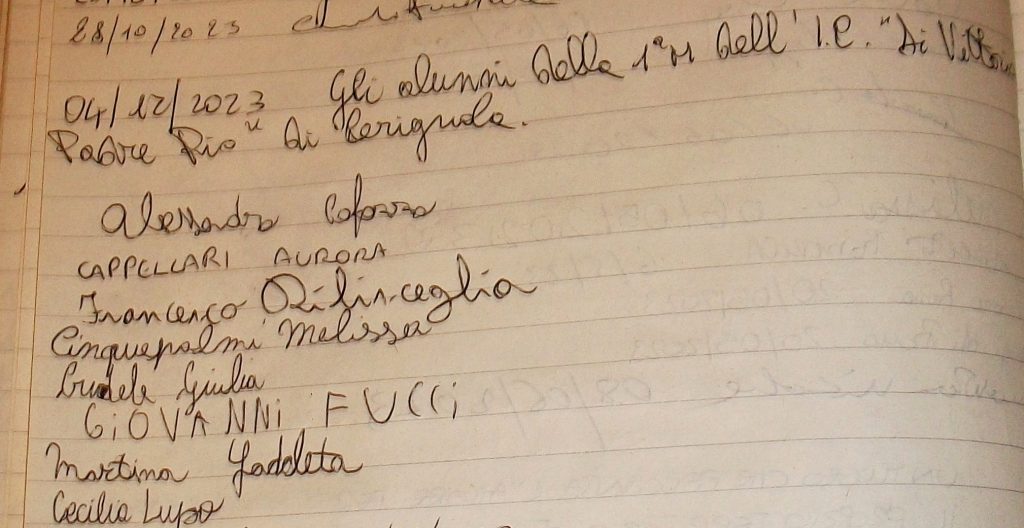 28/10/2023
04/12/2023 Gli alunni della 1ªM dell' I.C. "Di Vittorio
Padre Pio" di Cerignola.
Alessandro
CAPPELLARI AURORA
Francesco
Cinquepalmi Melissa
Crudele Giulia
GiOVANNi FUCCi
Martina Gaddeta
Cecilia Lupo